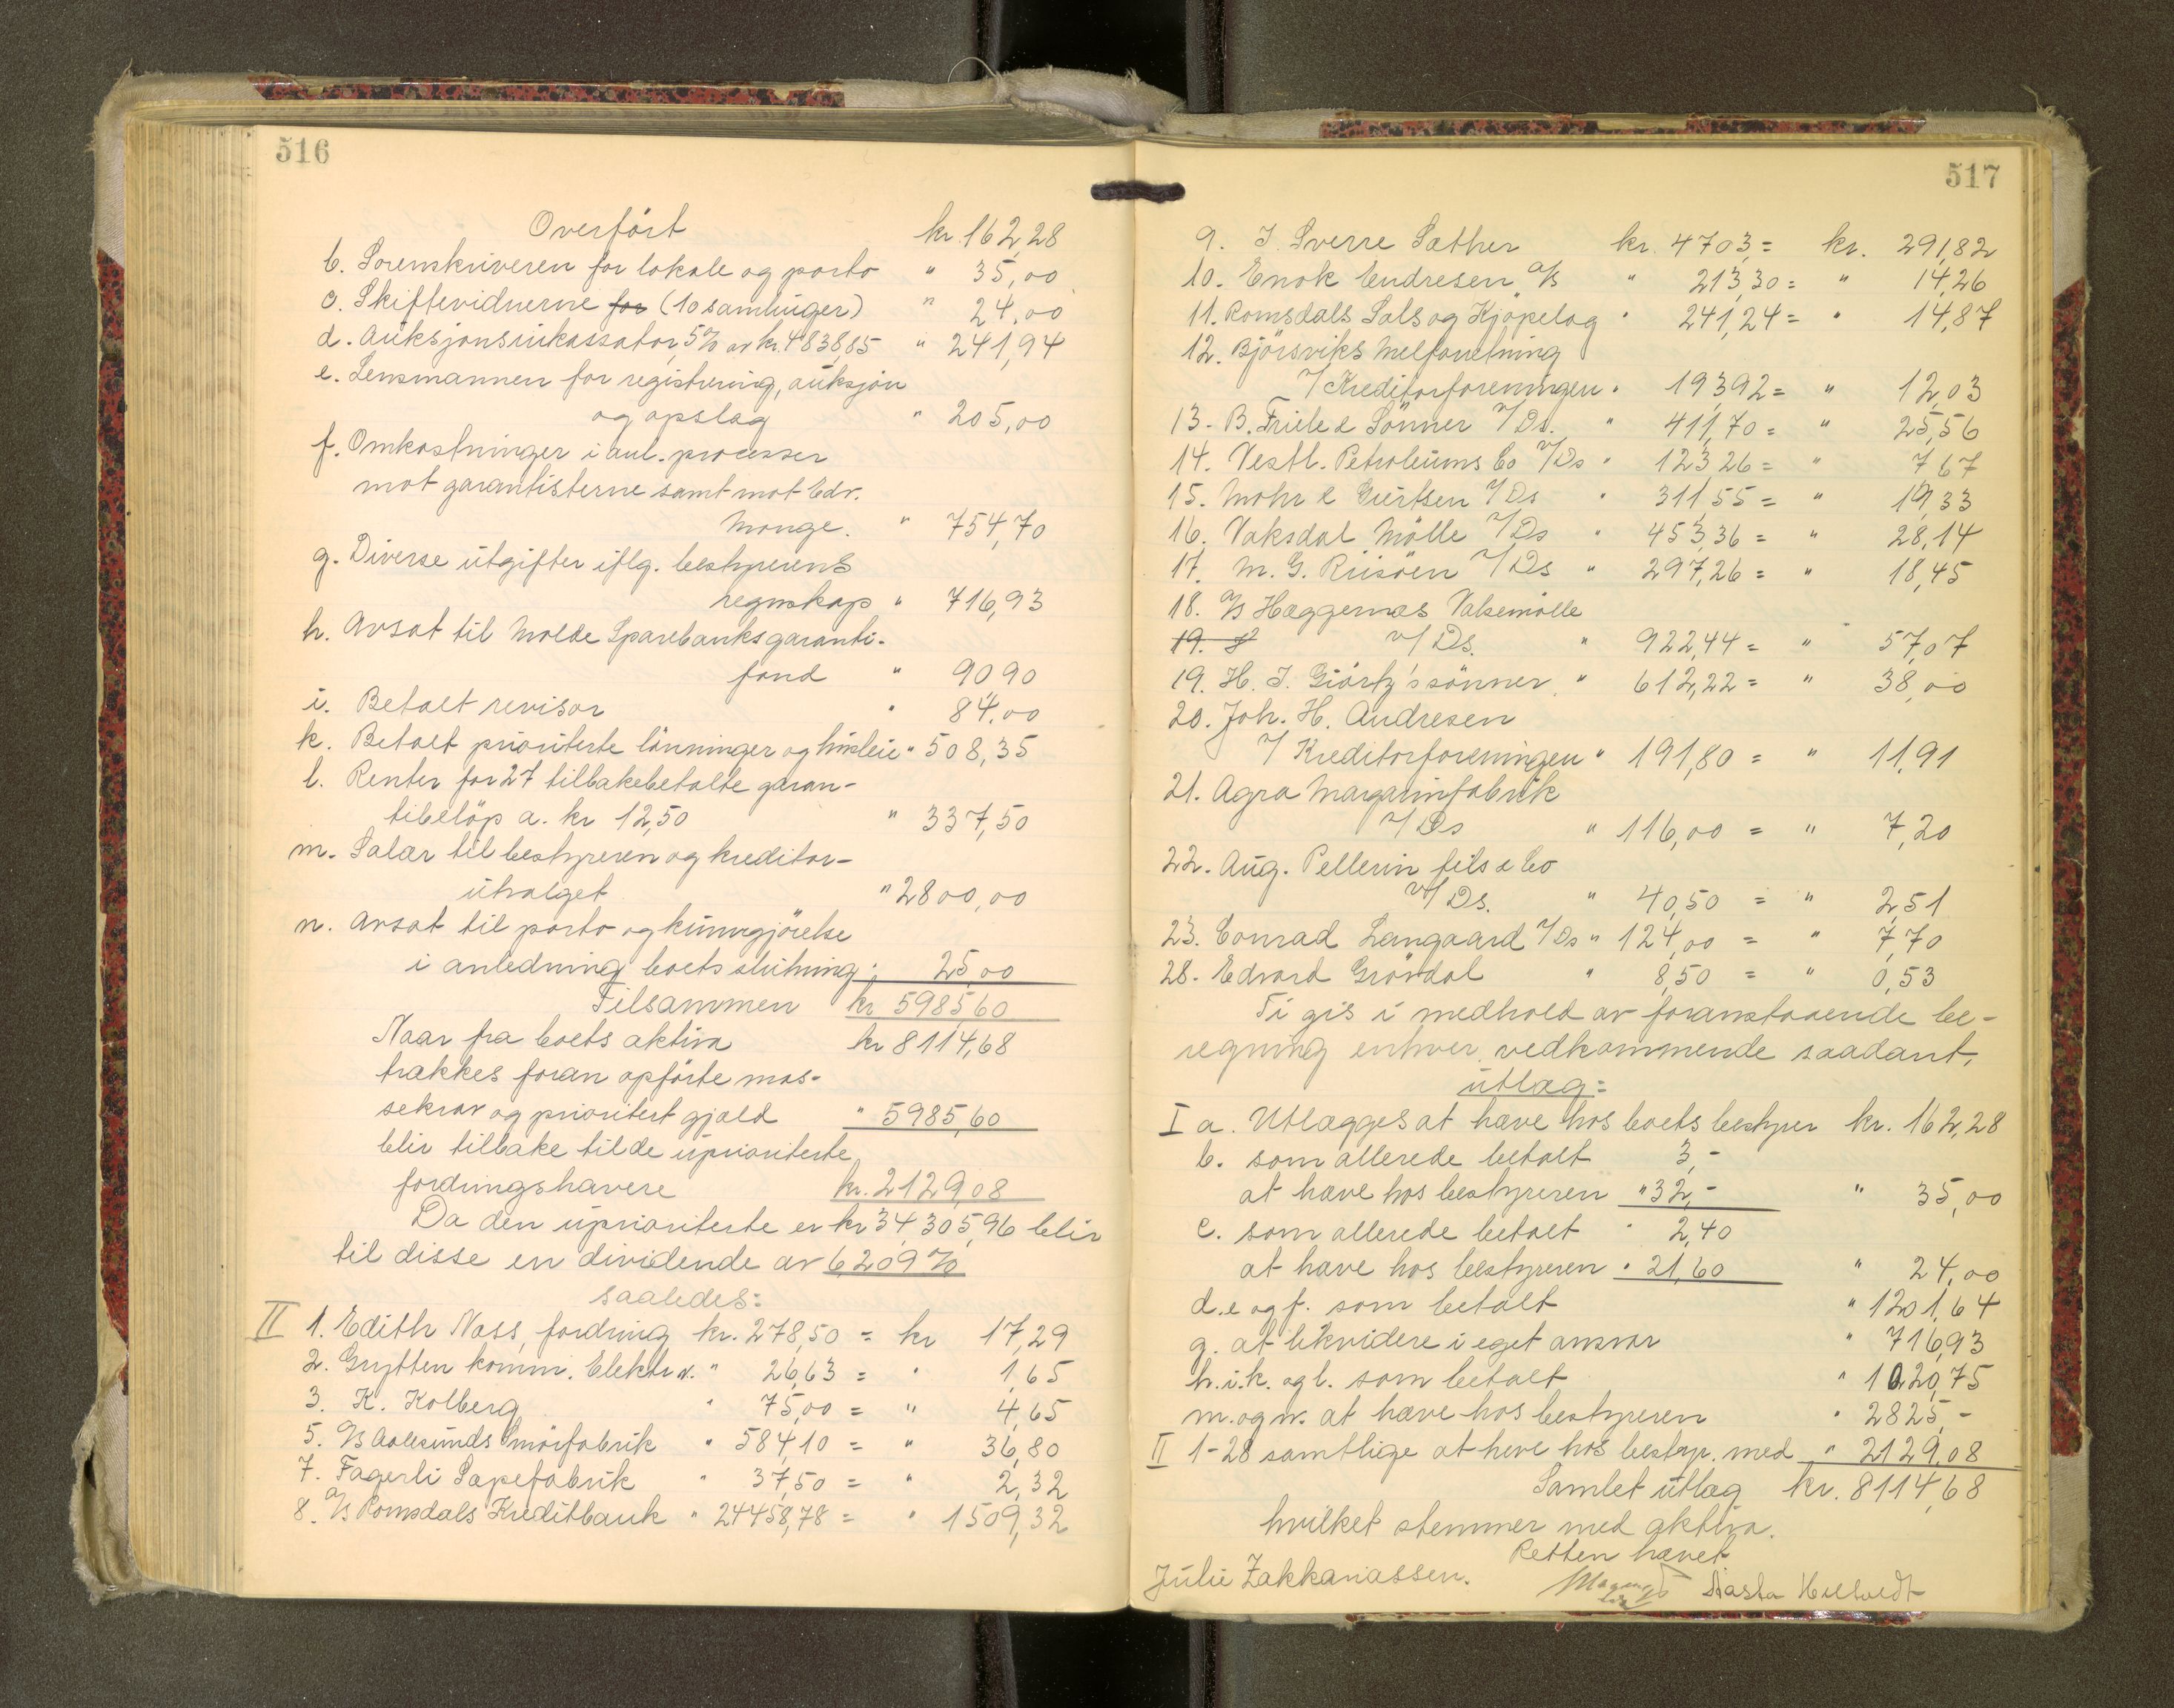 516
Overført kr. 162,28
b. Sorenskriveren for lokale og porto " 35,00
c. Skiftevidnerne for (10 samlinger) " 24,00
d. Auksjonsinkassator, 5% av kr. 4838,85 " 241,94
e. Lensmannen for registrering, auksjon
og opslag " 205,00
f. Omkostninger i anl. processer
mot garantisterne samt mot Edv.
Monge. " 754,70
g. Diverse utgifter iflg. bestyrerens
regnskap " 716,93
h. Avsat til Molde Sparebanks garanti-
fond " 90 90
i. Betalt revisor " 84,00
k. Betalt prioriterte lønninger og husleie " 508,35
l. Renter for 27 tilbakebetalte garan-
tibeløp a. kr 12,50 " 337,50
m. Salær til bestyreren og kreditor-
utvalget " 2800,00
n. Avsat til porto og kunngjørelse
i anledning boets slutning " 25,00
Tilsammen kr 5985,60
Naar fra boets aktiva kr 8114,68
trækkes foran opførte mas-
sekrav og prioritert gjæld " 5985,60
blir tilbake til de uprioriterte
fordringshavere kr. 2129,08
Da den uprioriterte er kr 34,305,96 blir
til disse en dividende av 6,209%
saaledes:
II 1. Edith Næss, fordring kr. 278,50 = kr 17,29
2. Grytten komm. Elektr.v. " 26,63 = " 1,65
3. K. Kolberg " 75,00 = " 4,65
5. A/S Aalesunds Smørfabrik " 584,10 = " 36,80
7. Fagerli Sæpefabrik " 37,50 = " 2,32
8. A/S Romsdals Kreditbank " 24458,78 = " 1509,32
517
9. J. Sverre Sæther kr. 4703,= kr. 291,82
10. Enok Endresen A/S " 213,30 = " 14,26
11. Romsdals Sals og Kjøpelag " 241,24 = " 14,87
12. Bjørsviks Melforretning
v/ Kreditorforeningen " 193,92 = " 12,03
13. B. Friele & Sønner v/ Ds. " 411,70 = " 25,56
14. Vestl. Petroleums Co v/ Ds " 123,26 = " 7,67
15. Mohr & Giertsen v/ Ds " 311,55 = " 19,33
16. Vaksdal Mølle v/ Ds " 453,36 = " 28,14
17. M. G. Riisøen v/ Ds " 297,26 = " 18,45
18. A/S Hæggernæs Valsemølle
19. v/ Ds. " 922,44 = " 57,07
19. H. J. Giørtz's sønner " 612,22 = " 38,00
20. Joh. H. Andresen
v/ Kreditorforeningen " 191,80 = " 11,91
21. Agra Margarinfabrik
v/ Ds " 116,00 = " 7,20
22. Aug. Pellerin fils & Co
v/ Ds. " 40,50 = " 2,51
23. Conrad Langaard v/ Ds " 124,00 = " 7,70
28. Edvard Grøndal " 8,50 = " 0,53
Ti gis i medhold av foranstaaende be-
regning enhver vedkommende saadant
utlæg:
I a. Utlægges at hæve hos boets bestyrer kr. 162,28
b. som allerede betalt 3,-
at hæve hos bestyreren " 32,- " 35,00
c. som allerede betalt " 2,40
at hæve hos bestyreren " 21,60 " 24,00
d. e og f. som betalt " 1201,64
g. at likvidere i eget ansvar " 716,93
h. i. k. og l. som betalt " 1020,75
m. og n. at hæve hos bestyreren " 2825,-
II 1-28 samtlige at heve hos bestyr. med " 2129,08
Samlet utlæg kr. 8114,68
hvilket stemmer med aktiva.
Retten hævet
Julie Zakkariassen. Aasta